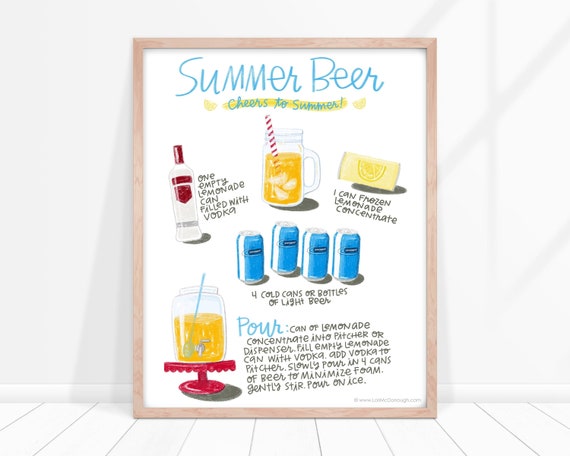 SUMMER BEER
Cheers to Summer!
ONE
EMPTY
LEMONADE
CAN
FILLED WITH
VODKA
1 CAN FROZEN
LEMONADE
CONCENTRATE
4 COLD CANS OR BOTTLES
OF LIGHT BEER
POUR: CAN OF LEMONADE
CONCENTRATE INTO PITCHER OR
DISPENSER. FILL EMPTY LEMONADE
CAN WITH VODKA. ADD VODKA TO
PITCHER. SLOWLY POUR IN 4 CANS
OF BEER TO MINIMIZE FOAM.
GENTLY STIR. POUR ON ICE.